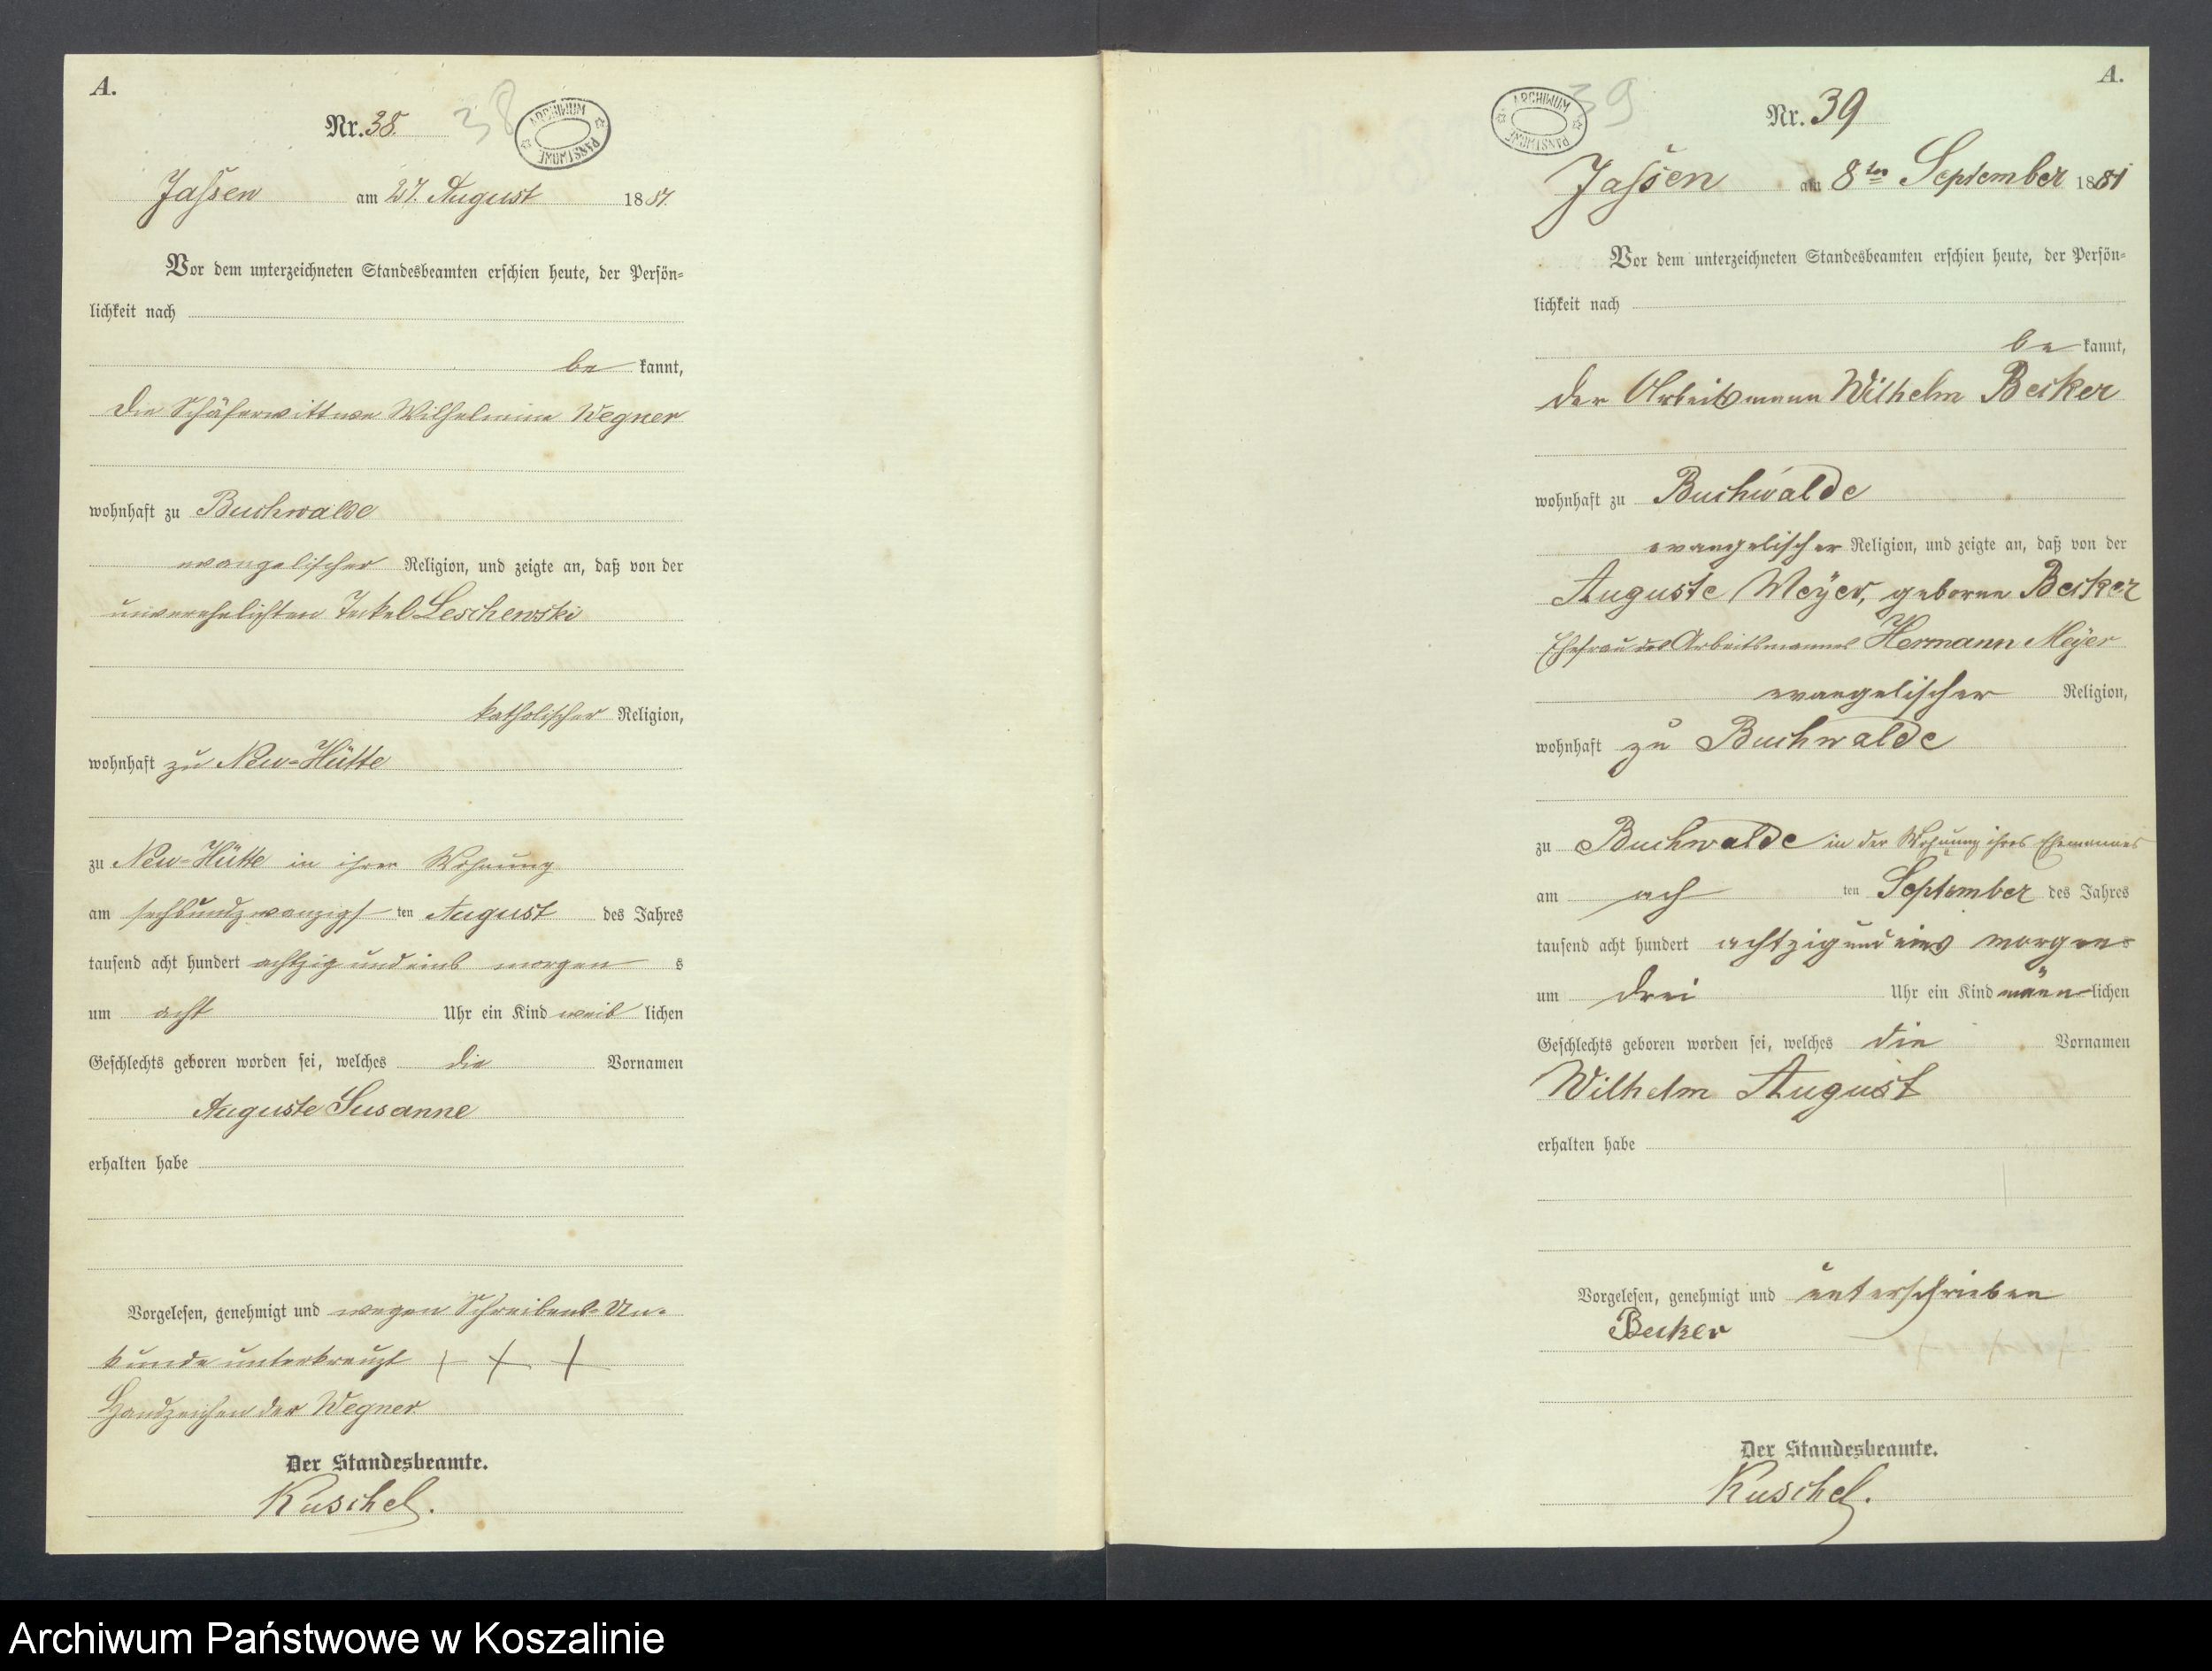 A.
Nr. 38.
38
ARCHIWUM PAŃSTWOWE
Jassen am 27. August 1881.
Vor dem unterzeichneten Standesbeamten erschien heute, der Persön=
lichkeit nach
be kannt,
die Schäferwittwe Wilhelmine Wegner
wohnhaft zu Buchwalde
evangelischer Religion, und zeigte an, daß von der
unverehelichten Leschewski
katholischer Religion,
wohnhaft zu Neu=Hütte
zu Neu=Hütte in ihrer Wohnung
am sechsundzwanzigs ten August des Jahres
tausend acht hundert achtzig und eins morgen s
um acht Uhr ein Kind weib lichen
Geschlechts geboren worden sei, welches die Vornamen
Auguste Susanne
erhalten habe
Vorgelesen, genehmigt und wegen Schreibens=Un=
kunde unterkreuzt + + +
Handzeichen der Wegner
Der Standesbeamte.
Kuschel.
A.
Nr. 39
39
ARCHIWUM PAŃSTWOWE
Jassen am 8ten September 1881
Vor dem unterzeichneten Standesbeamten erschien heute, der Persön=
lichkeit nach
be kannt,
der Arbeitsmann Wilhelm Becker
wohnhaft zu Buchwalde
evangelischer Religion, und zeigte an, daß von der
Auguste Meyer, geborne Becker
Ehefrau des Arbeitsmannes Hermann Meyer
evangelischer Religion,
wohnhaft zu Buchwalde
zu Buchwalde in der Wohnung ihres Ehemannes
am ach ten September des Jahres
tausend acht hundert achtzig und eins morgens
um drei Uhr ein Kind männ lichen
Geschlechts geboren worden sei, welches die Vornamen
Wilhelm August
erhalten habe
Vorgelesen, genehmigt und unterschrieben
Becker
Der Standesbeamte.
Kuschel.
Archiwum Państwowe w Koszalinie